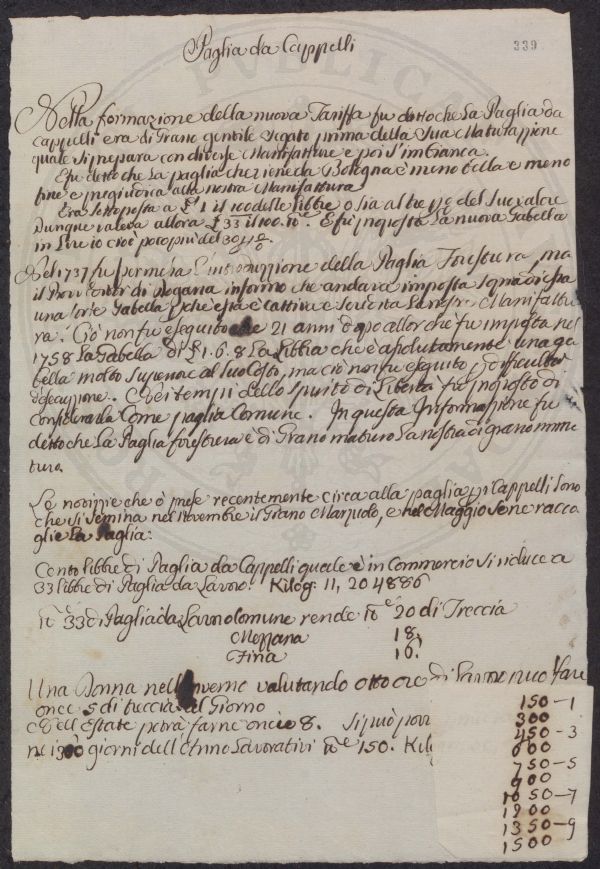 Paglia da Cappelli
339
Nella formazione della nuova Tariffa fu detto che La Paglia da
Cappelli era di Grano gentile segato prima della Sua Maturazione
quale si prepara con diverse Manifatture e poi s'imbianca.
E fu detto che La paglia che viene da Bologna è meno bella e meno
fine e pregiudica alla nostra Manifattura
Era sottoposta a £ 1 il 100 delle libbre o sia al 3 del Suo valore
Dunque valeva allora £ 33 il 100. E fu proposta La nuova Gabella
in Lire 10 cioè poco più del 30
Nel 1737 fu permessa L'introduzzione della Paglia Forestiera, ma
il Provveditor di Dogana informò che andava imposta sopra di essa
una forte Gabella perche essa è cattiva e scredita Le nostre Manifattu
ra. Ciò non fu eseguito che 21 anni dopo allor che fu imposta nel
1758 La Gabella di £ 1. 6. 8 La Libbra che è assolutamente una ga
bella molto superiore al suo costo, ma ciò non fu eseguito per difficultà
d'esecuzione. Nei tempi dello spirito di Libertà fu proposto di
Considerarla Come paglia Comune. In questa Informazione fu
detto che La Paglia forestiera è di Grano maturo La nostra di grano imma
turo.
Le notizie che ò prese recentemente circa alla paglia pei Cappelli sono
che si semina nel Novembre il Grano Marzuolo, e nel Maggio se ne racco
glie La Paglia.
Cento libbre di Paglia da Cappelli quale è in Commercio si riduce a
33 libbre di Paglia da Lavoro. Kilog: 11, 204886
33 di Paglia da Lavoro Comune rende 20 di Treccia
Mezzana 18.
Fina 16.
Una Donna nell'Inverno valutando otto ore di Lavoro può fare
once 5 di treccia il Giorno
e nell'Estate potrà farne oncie 8. Si può
ne i 300 giorni dell'Anno Lavorativi 150.
150 — 1
300
450 — 3
600
750 — 5
900
1050 — 7
1200
1350 — 9
1500